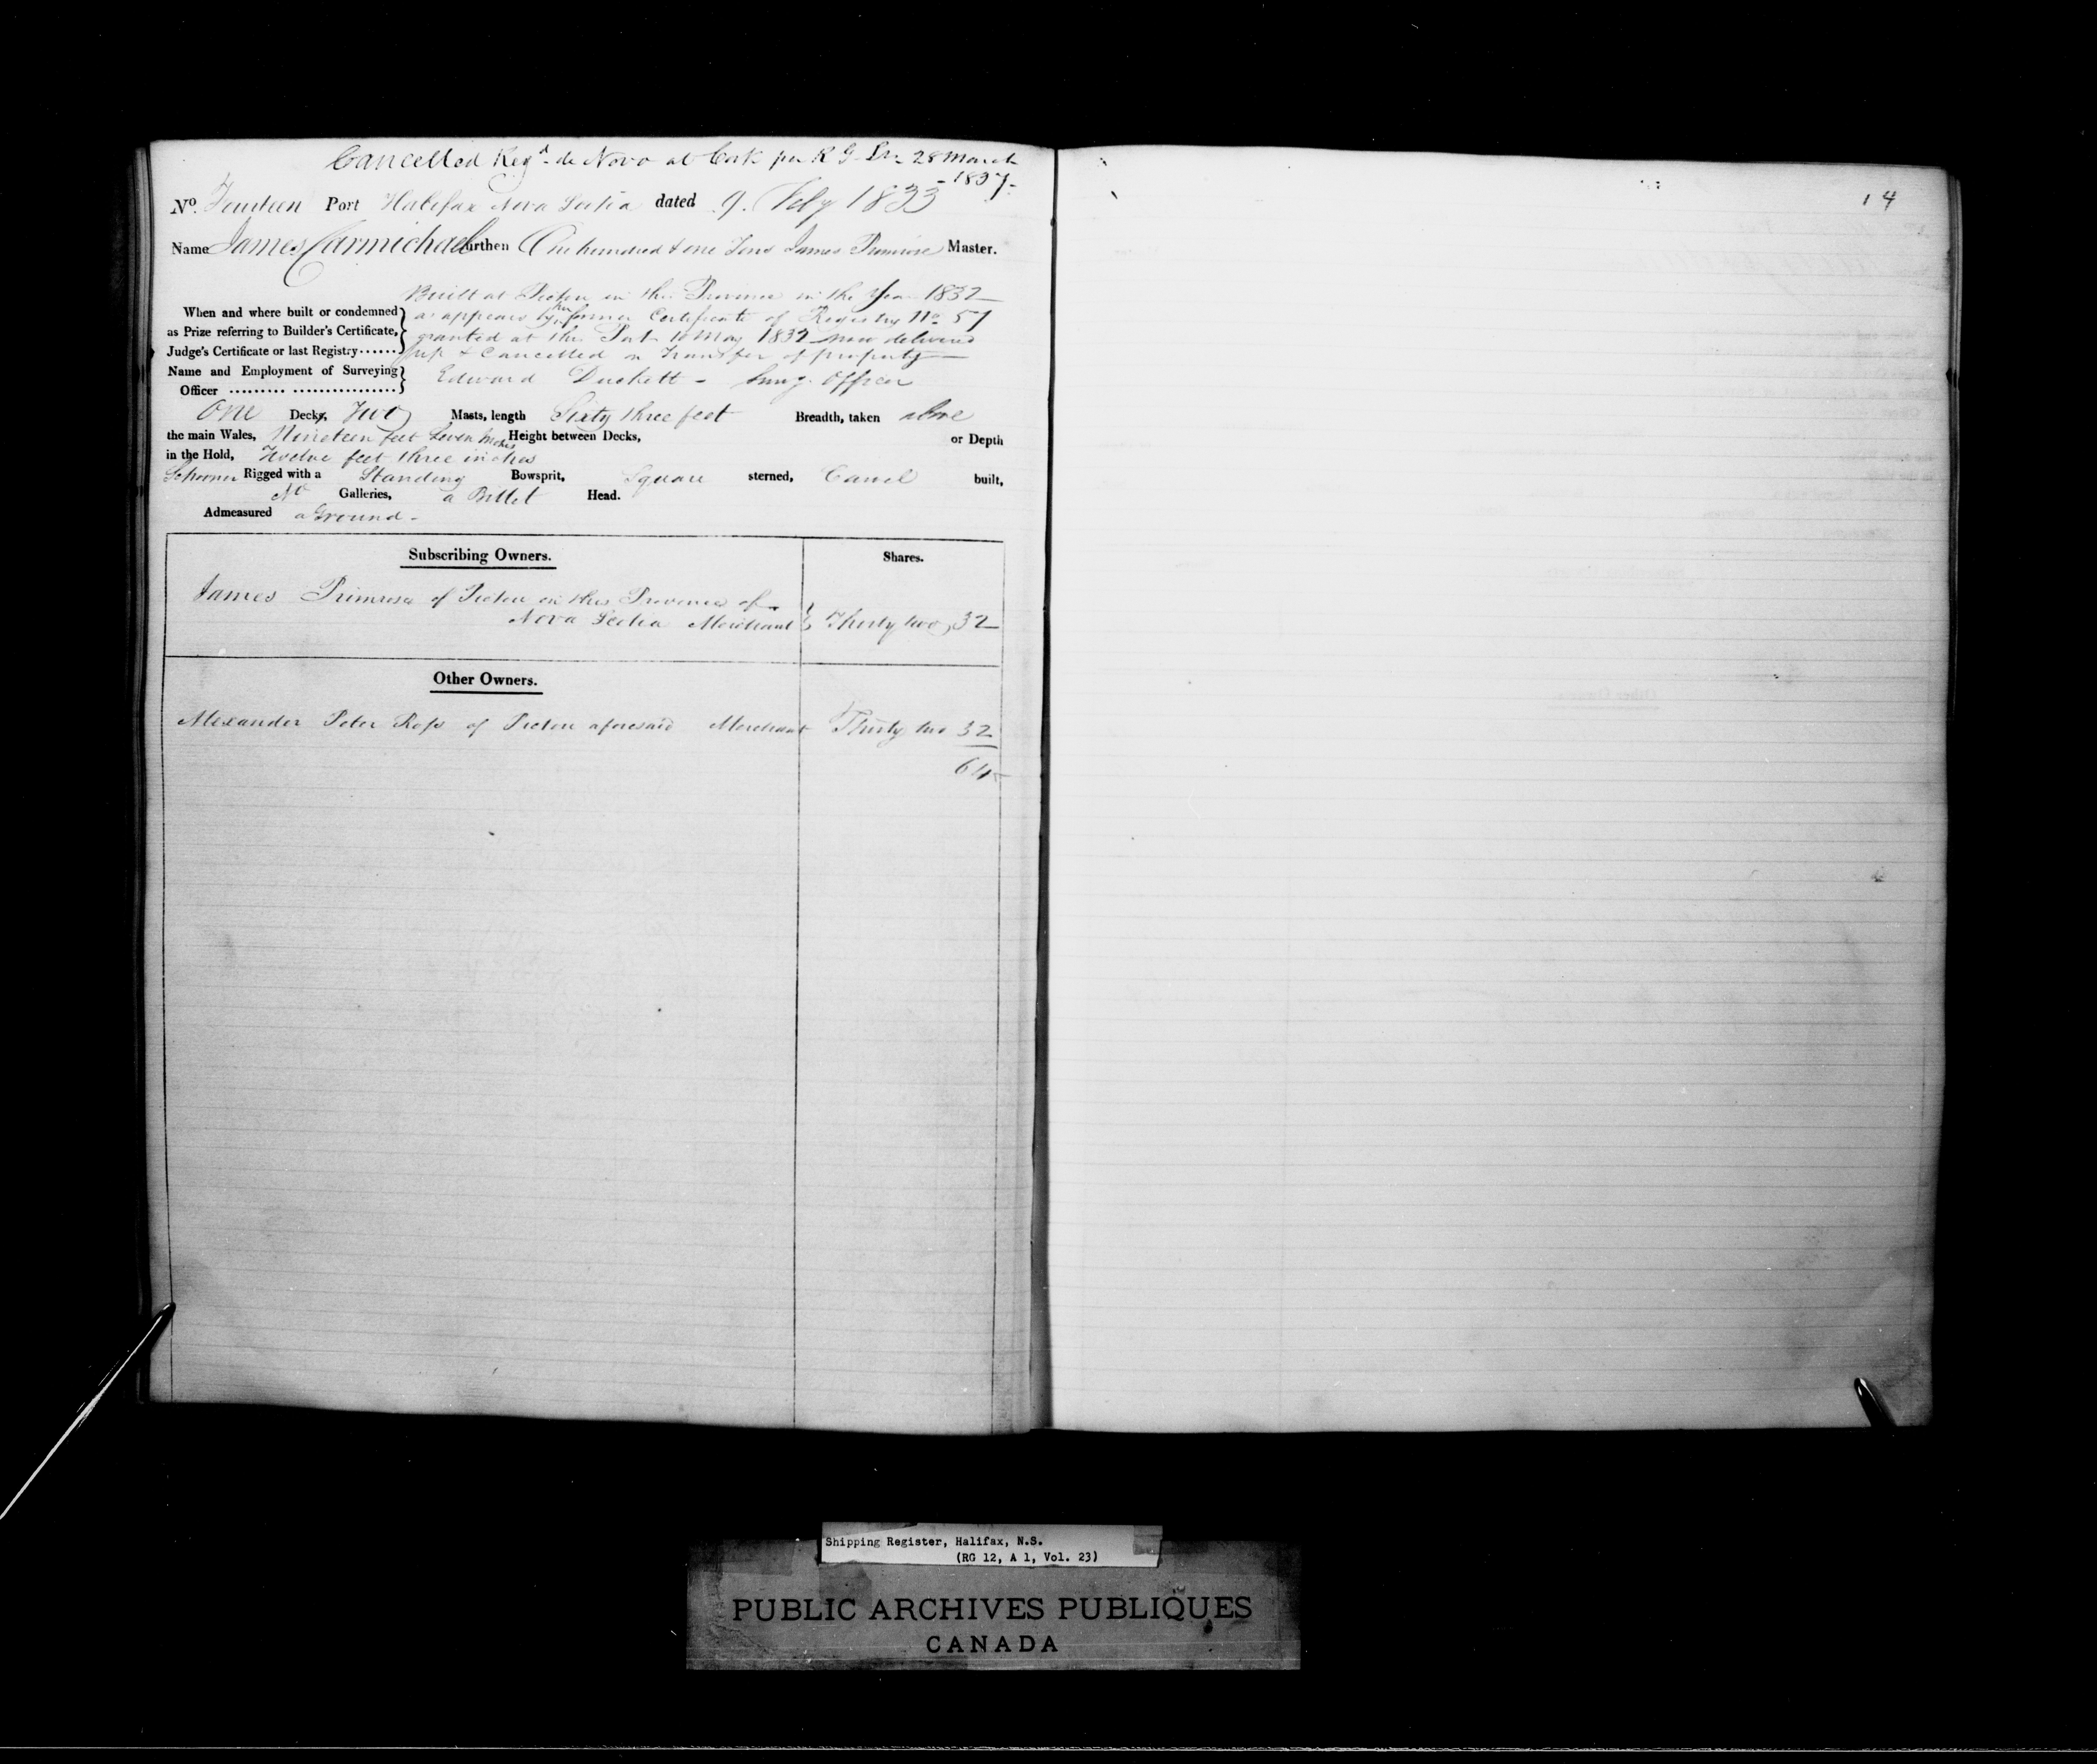 Cancelled Regd. de Novo at Cork per R G Lr. 28 March
- 1837 -
No. Fourteen Port Halifax Nova Scotia dated 9. Feby 1833
Name James Carmichael Burthen One hundred & one Tons James Primrose Master.
Built at Pictou in this Province in the Year 1832
When and where built or condemned as appears by her former Certificate of Registry No. 57
as Prize referring to Builder's Certificate, granted at this Port 10 May 1832 now delivered
Judge's Certificate or last Registry...... up & Cancelled on Transfer of property
Name and Employment of Surveying
Officer ......... ................ Edward Duckett - Surv.g Officer
One Decks, Two Masts, length Sixty three feet Breadth, taken above
the main Wales, Nineteen feet Seven Inches Height between Decks, or Depth
in the Hold, Twelve feet three inches
Schooner Rigged with a Standing Bowsprit, Square sterned, Carvel built,
No Galleries, a Billet Head.
Admeasured aGround -
Subscribing Owners. Shares.
James Primrose of Pictou in this Province of
Nova Scotia Merchant } Thirty two 32
Other Owners.
Alexander Peter Ross of Pictou aforesaid Merchant Thirty two 32
64
14
Shipping Register, Halifax, N.S.
(RG 12, A 1, Vol. 23)
PUBLIC ARCHIVES PUBLIQUES
CANADA